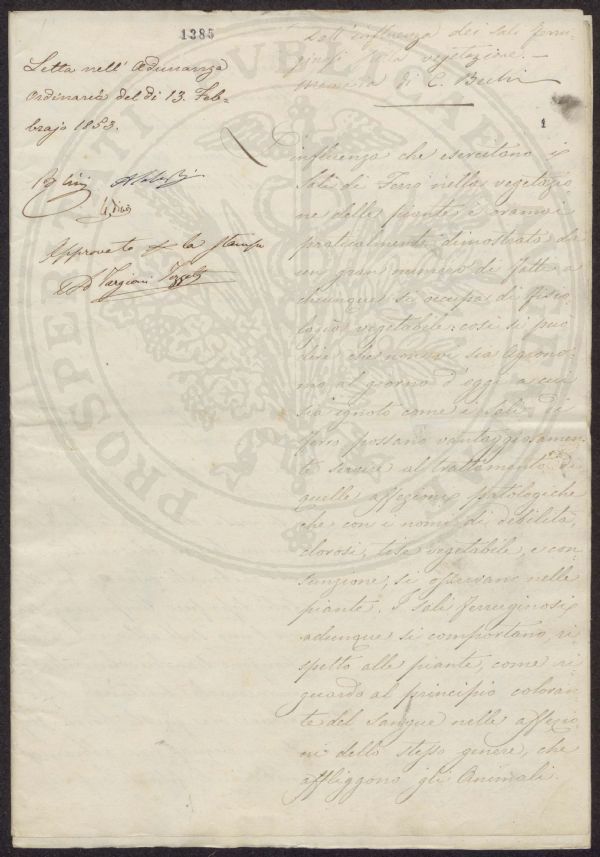 1385
Letta nell' Adunanza
Ordinaria del dì 13. Feb-
brajo 1853.
Approvato per la stampa
Targioni Tozzetti
Dell'influenza dei sali ferru-
ginosi sulla vegetazione. —
memoria di E. Bechi
1
L'influenza che esercitano i
Sali di Ferro nella vegetazio
ne delle piante è oramai
praticamente dimostrata da
un gran numero di fatti a
chiunque si occupa di fisio
logia vegetabile: così si può
dire che non vi sia Agrono-
mo al giorno d'oggi a cui
sia ignoto come i Sali di
ferro possano vantaggiosamen-
te servire al trattamento di
quelle affezioni patologiche
che con i nomi di debilità,
clorosi, tise vegetabile, e con-
sunzione, si osservano nelle
piante. I sali ferruginosi
adunque si comportano, ri
spetto alle piante, come ri
guardo al principio coloran
te del sangue nelle affezio
ni dello stesso genere, che
affliggono gli Animali.
PROSPERITATI